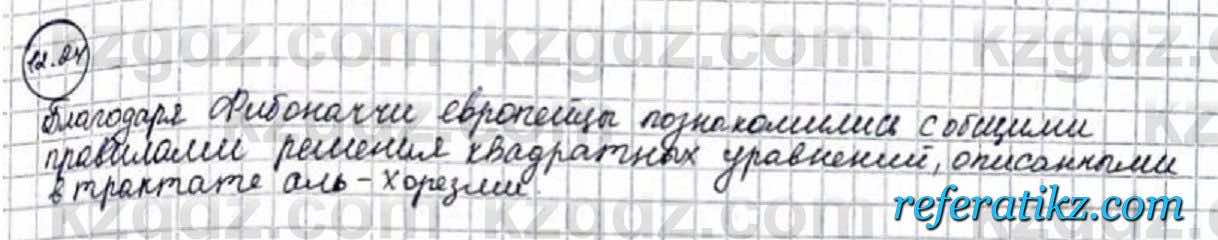 kzgdz.com kzgdz.com kzgdz.com
12.24
Благодаря Фибоначчи европейцы познакомились с общими
правилами решения квадратных уравнений, описанными
в трактате аль-Хорезми.
referatikz.com